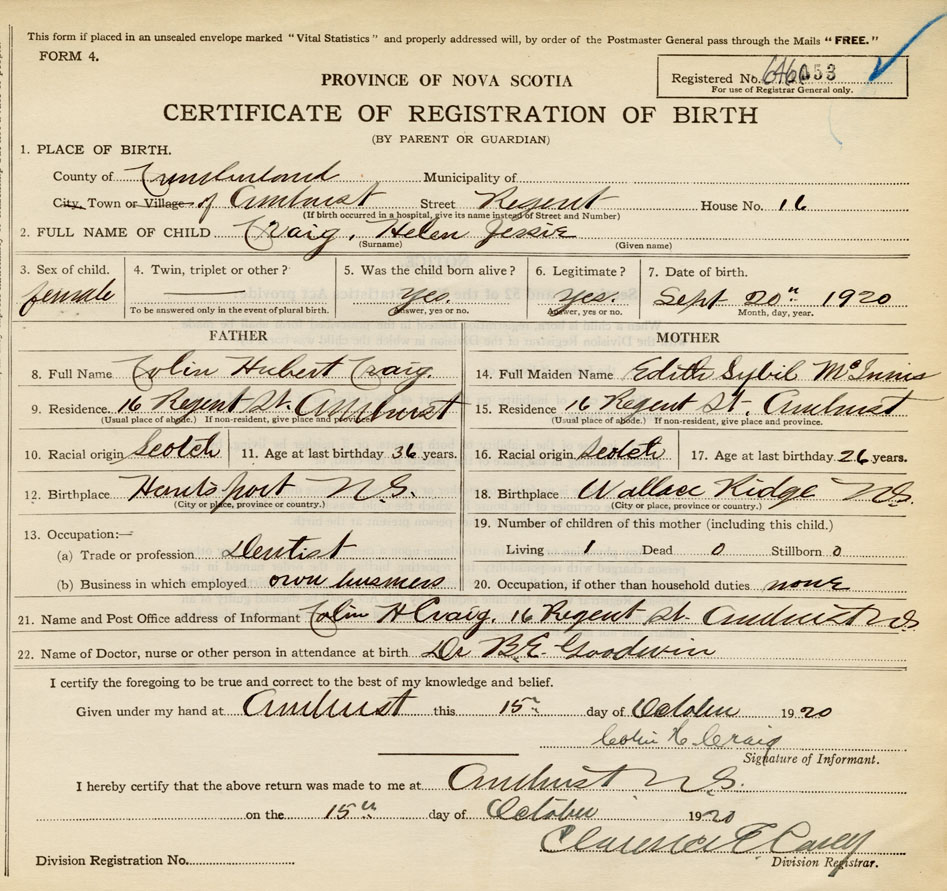 This form if placed in an unsealed envelope marked "Vital Statistics" and properly addressed will, by order of the Postmaster General pass through the Mails "FREE."
FORM 4.
Registered No. 053
For use of Registrar General only.
PROVINCE OF NOVA SCOTIA
CERTIFICATE OF REGISTRATION OF BIRTH
(BY PARENT OR GUARDIAN)
1. PLACE OF BIRTH.
County of Cumberland Municipality of
City, Town or Village of Amherst Street Regent House No. 16
(If birth occurred in a hospital, give its name instead of Street and Number)
2. FULL NAME OF CHILD Craig, Helen Jessie
(Surname) (Given name)
3. Sex of child. 4. Twin, triplet or other? 5. Was the child born alive? 6. Legitimate? 7. Date of birth.
female Yes. Yes. Sept 20th 1920
To be answered only in the event of plural birth. Answer, yes or no. Answer, yes or no. Month, day, year.
FATHER MOTHER
8. Full Name Colin Hubert Craig. 14. Full Maiden Name Edith Sybil McInnis
9. Residence. 16 Regent St. Amherst 15. Residence 16 Regent St. Amherst
(Usual place of abode.) If non-resident, give place and province. (Usual place of abode.) If non-resident, give place and province.
10. Racial origin Scotch 11. Age at last birthday 36 years. 16. Racial origin Scotch 17. Age at last birthday 26 years.
12. Birthplace Hantsport N.S. 18. Birthplace Wallace Ridge N.S.
(City or place, province or country.) (City or place, province or country.)
13. Occupation:— 19. Number of children of this mother (including this child.)
(a) Trade or profession Dentist Living 1 Dead 0 Stillborn 0
(b) Business in which employed own business 20. Occupation, if other than household duties none
21. Name and Post Office address of Informant Colin H Craig. 16 Regent St. Amherst N.S.
22. Name of Doctor, nurse or other person in attendance at birth Dr B.E. Goodwin
I certify the foregoing to be true and correct to the best of my knowledge and belief.
Given under my hand at Amherst this 15th day of October 1920
Colin H Craig
Signature of Informant.
I hereby certify that the above return was made to me at Amherst N.S.
on the 15th day of October 1920
Clarence E Casey
Division Registration No. Division Registrar.